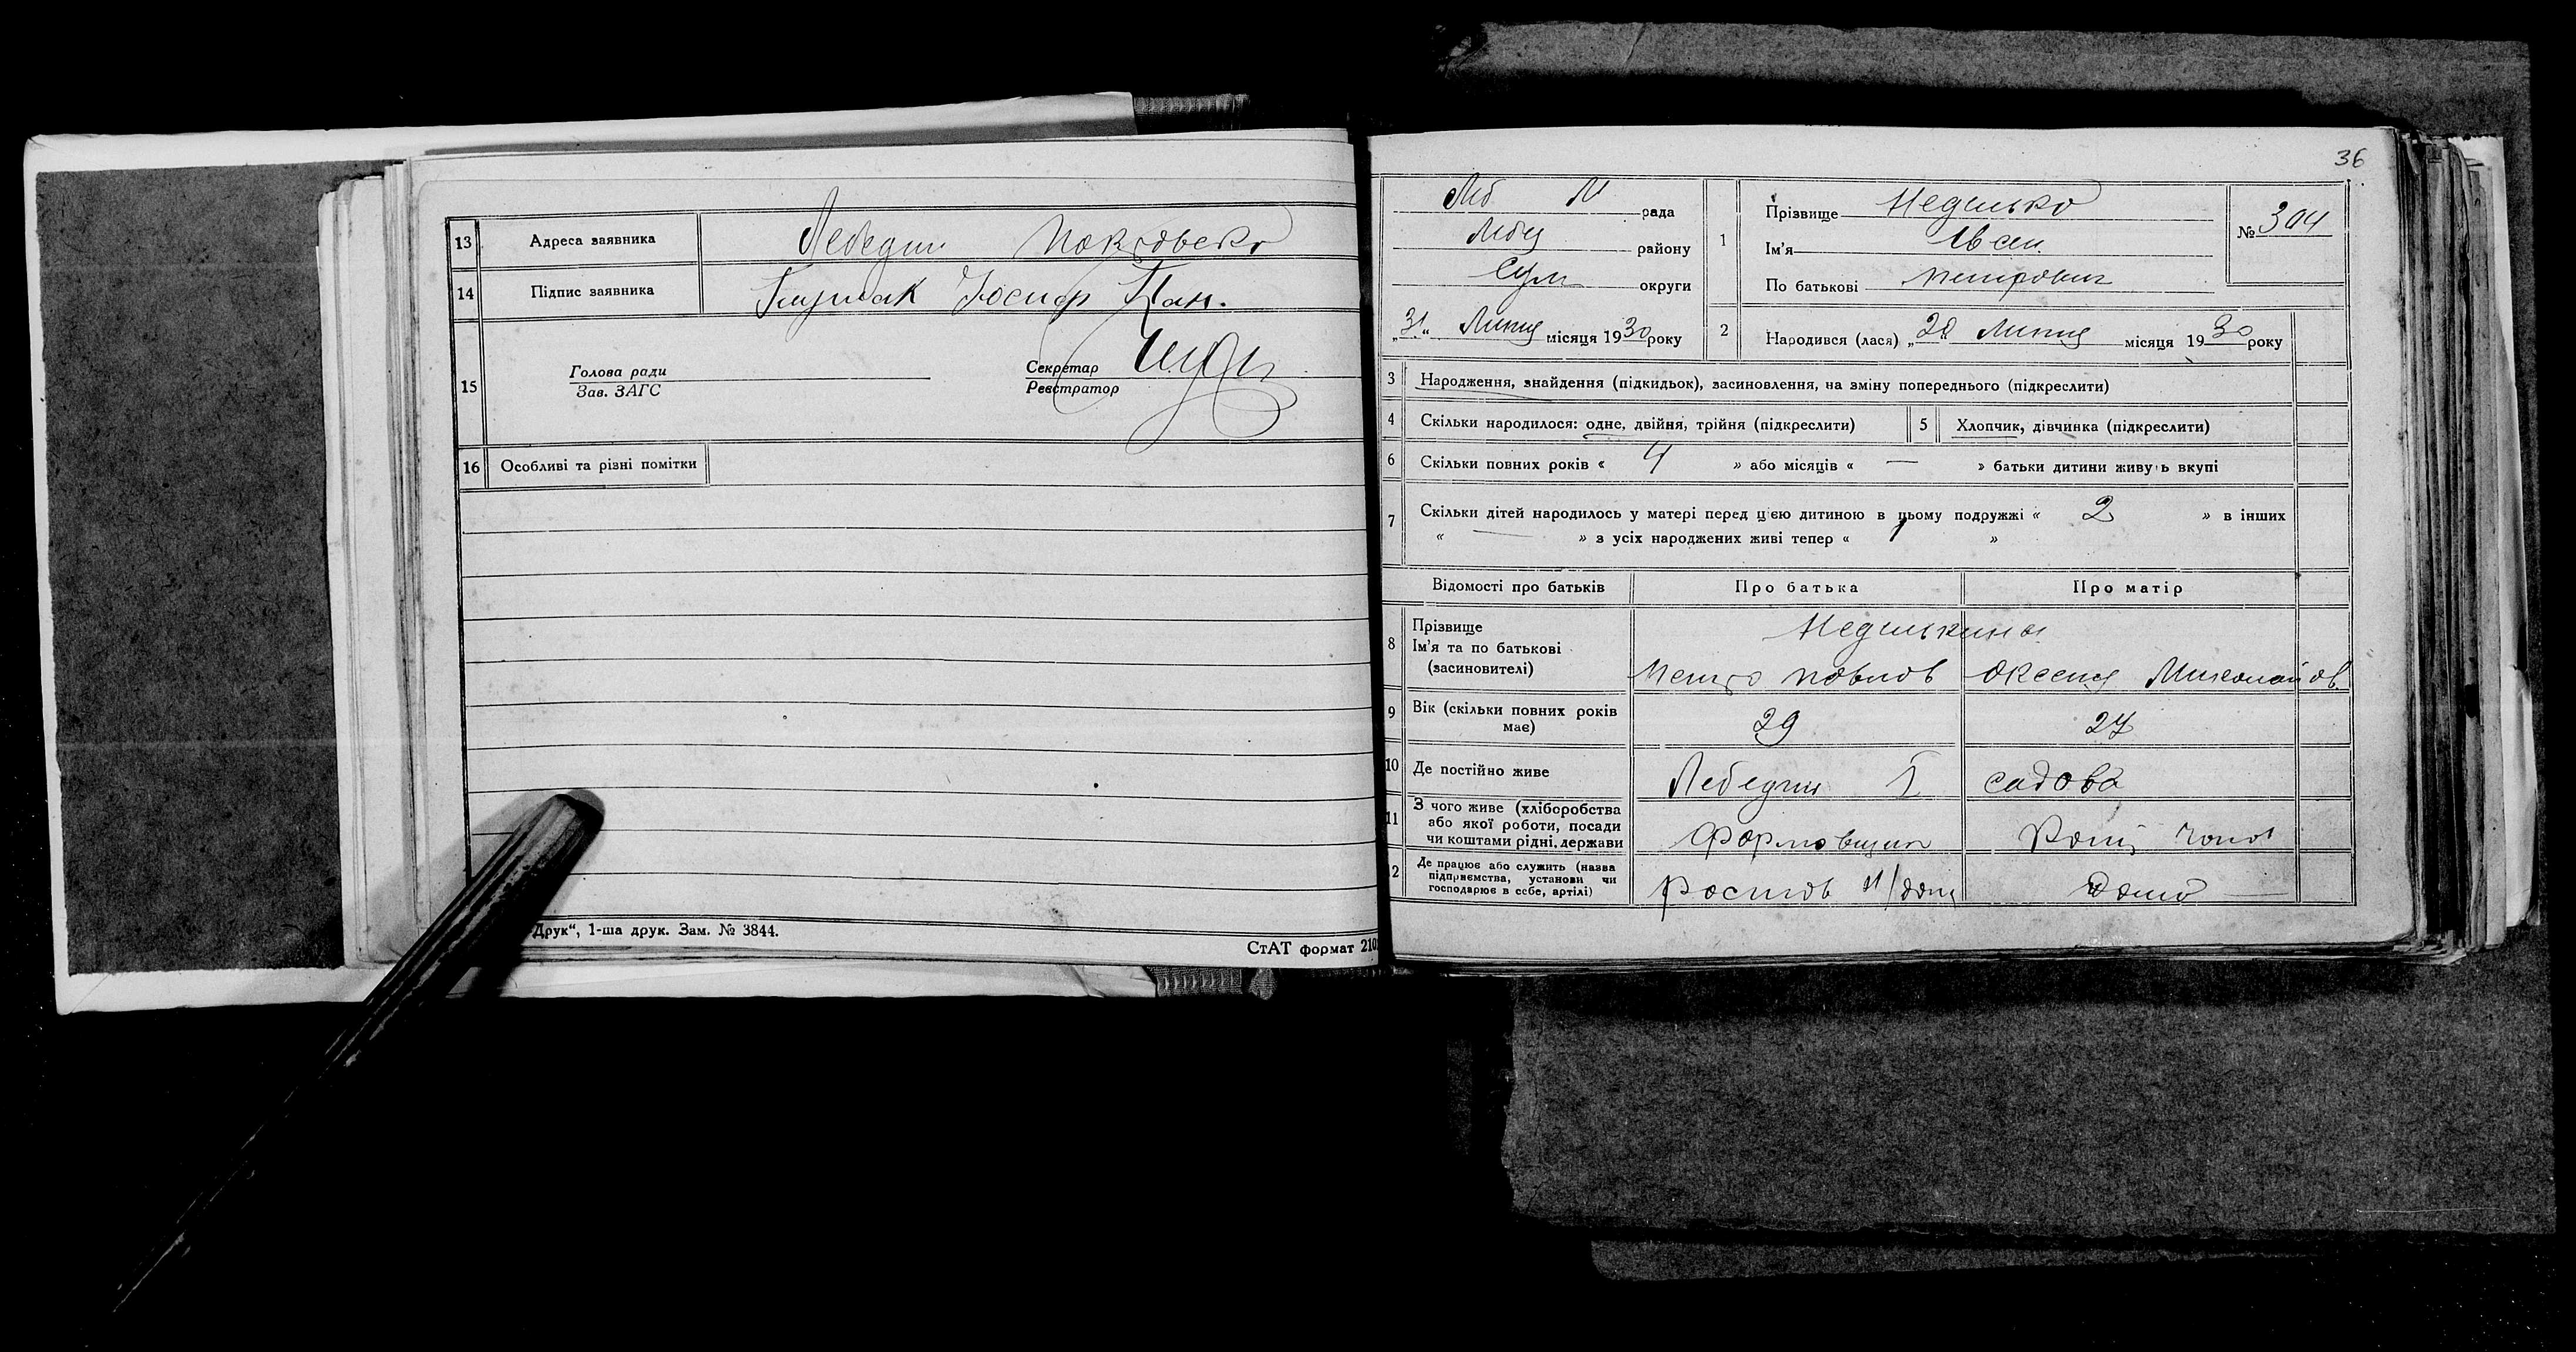 13 Адреса заявника Лебедин Покровська
14 Підпис заявника Йосиф Пан.
15 Голова ради
Зав. ЗАГС
Секретар
Реєстратор
16 Особливі та різні помітки
Друк“, 1-ша друк. Зам. № 3844.
СтАТ формат 210
36
Леб М рада
Лебед району
Сум округи
„31“ Липня місяця 1930 року
1 Прізвище Неділько
Ім'я Івсей
По батькові Петрович
№ 304
2 Народився (лася) „28 Липня місяця 1930 року
3 Народження, знайдення (підкидьок), засиновлення, на зміну попереднього (підкреслити)
4 Скільки народилося: одне, двійня, трійня (підкреслити)
5 Хлопчик, дівчинка (підкреслити)
6 Скільки повних років « 4 » або місяців « — » батьки дитини живуть вкупі
7 Скільки дітей народилось у матері перед цією дитиною в цьому подружжі « 2 » в інших
« — » з усіх народжених живі тепер « 1 »
Відомості про батьків Про батька Про матір
8 Прізвище
Ім'я та по батькові
(засиновителі)
Недількини
Петро Повлов Оксення Миколайов.
9 Вік (скільки повних років
має)
29 27
10 Де постійно живе Лебедин Садова
11 З чого живе (хліборобства
або якої роботи, посади
чи коштами рідні, держави
Формовщик
2 Де працює або служить (назва
підприємства, установи чи
господарює в себе, артілі)
Ростов н/дону Дома